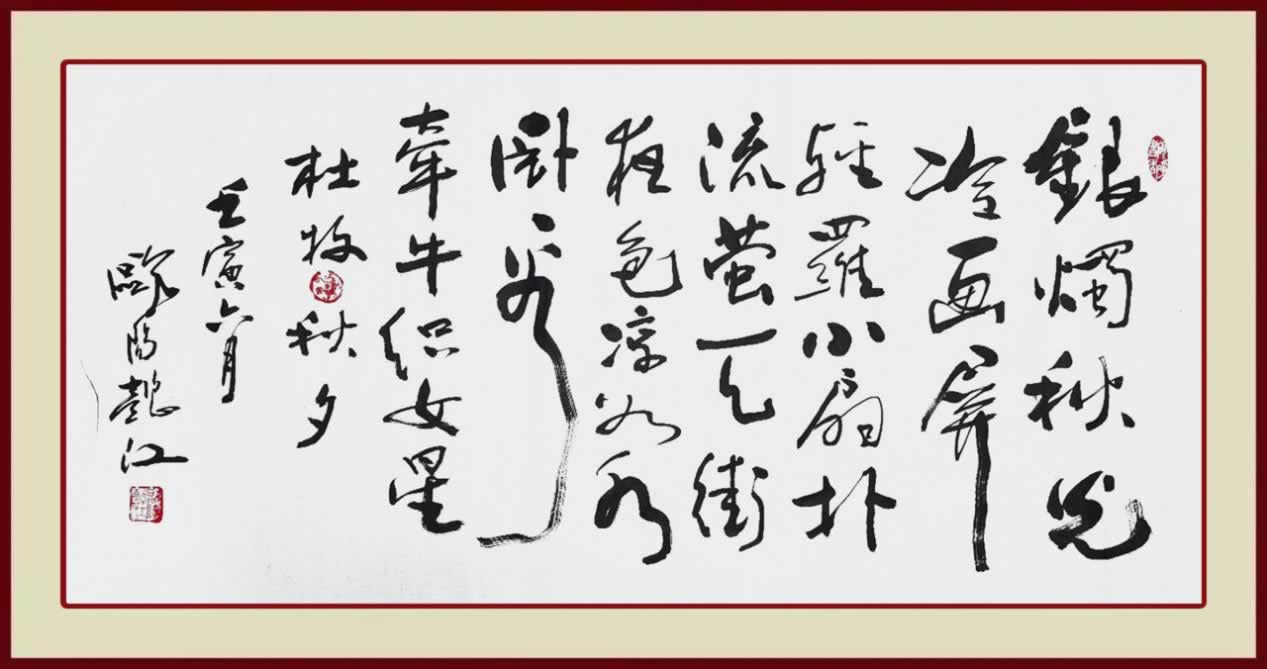 銀燭秋光
冷画屏
輕羅小扇扑
流萤天街
夜色凉如水
卧看
牵牛织女星
杜牧秋夕
壬寅六月
歐陽懿江